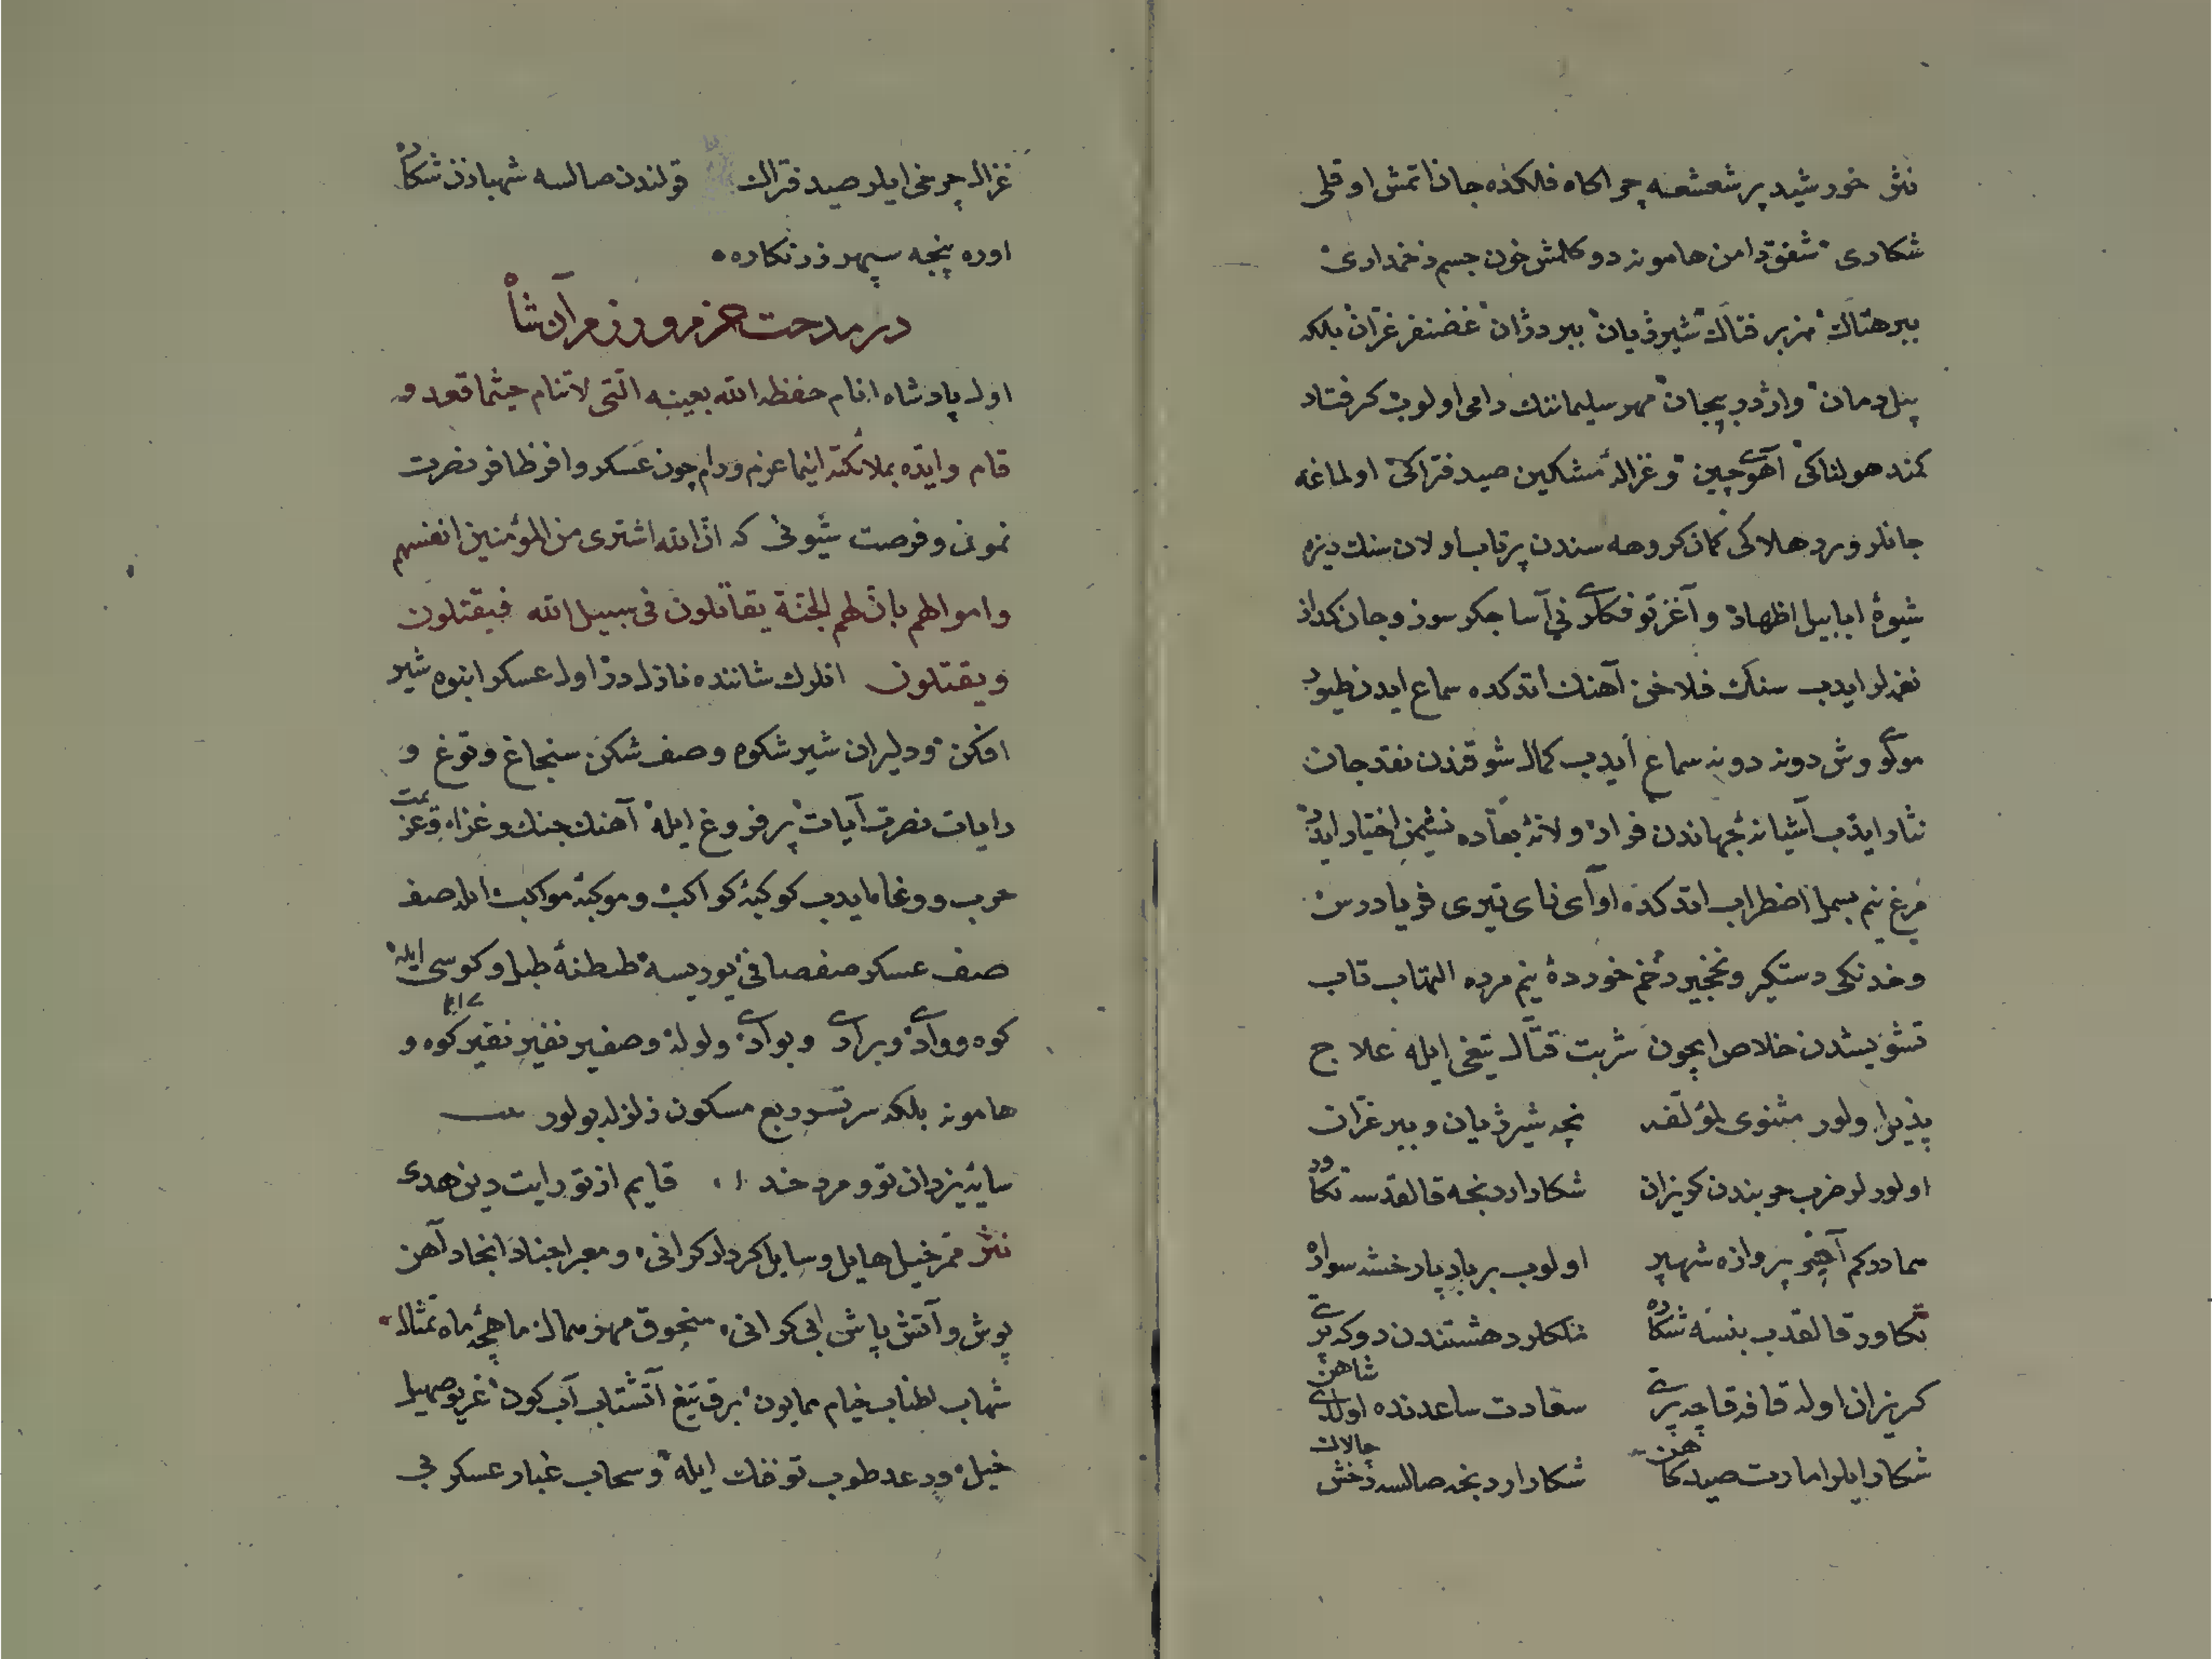 نثر خورشید پر شعشعه چراکاه فلکده جان اتمش اوقلی
شکاری شفق دامن هامونه دوکلمش خون جسم زخمداری
ببر هتاک هزبر فتاک شیر ژیان ببر دژان غضنفر غران بلکه
پیل دمان واژدر پیجان مهر سلیماننک رامی اولوب کرفتار
کمند هولناکی آهوی چین و غزال مشکین صید فتراکی اولماغه
جانلر ویرر هلاکی کمان کروهه سندن پرتاب اولان سنك ریزه
شیوۀ ابابیل اظهار و آغز توفکلری نی آسا جکر سوز و جان کداز
نغمه لر ایدب سنك فلاخن آهنك اتدکده سماع ایدن طیور
موی وش دونه دونه سماع ایدب کمال شوقندن نقد جان
نثار ایدب آشیانۀ جهاندن فرار ولانۀ بقاده نشیمن اختیار ایدر
مرغ نیم بسمل اضطراب اتدکده اوای نای تیری فریادرس
و خدنکی دستکیر و نخجیر زخم خوردۀ نیم مرده التهاب تاب
تشویشدن خلاص ایچون شربت قتال تیغی ایله علاج
پذیر اولور مثنوی لمؤلفه نچه شیر ژیان و ببر غران
اولورلر ضرب چوبندن کریزان شکار اردنجه قالقدسه تکاور
سمادر کم آچیجق پروازه شهپر اولوب بر باد پا رخشه سوار
تکاور قالقدب بنسه شکاره فلکلر دهشتندن دوکه پری
کریزان اوله قافه قاچه پری سعادت ساعدنده اولدی شاهن
شکار ایلر امارت صید کاهن شکار اردنجه صالسه رخش چالاك
غزال چرخی ایلر صید فتراك قولندن صالسه شهبازن شکاره
اوره پنجه سپهر زرنکاره
در مدحت عزم و رزم آن شاه
اول پادشاه انام حفظه الله بعینه التی لاتنام حیثما قعد و
قام وایده بملائکته اینما عزم ورام چون عسکر وافر ظافر نصرت
نمون و فرصت شیون که ان الله اشتری من المؤمنین انفسهم
واموالهم بان لهم الجنة یقاتلون فی سبیل الله فیقتلون
ویقتلون انلرك شاننده نازل در اول عسکر انبوه شیر
افکن ودلیران شیر شکوه وصف شکن سنجاغ وتوغ و
رایات نصرت آیات پر فروغ ایله آهنك جنك وغزا وعزیمت
حرب و وغا ایدب کوکبۀ کواکب و موکبۀ مواکب ایله صف
صف عسکر صفصافی یوریسه طنطنۀ طبل و کوسی ایله
کوه و وادی و براری و بوادی ولوله و صفیر نفیر نفیر ایله کوه و
هامونه بلکه سرتسر ربع مسکون زلزله بولور
سایۀ یزدان تو و مرد خدا قایم از تو رایت دین هدی
نثر ممر خیل هایل و سایل کردار کرانی و معبر اجناد انجاد آهن
پوش و آتش پاش بی کرانی منجوق مهر مال ماهچۀ ماه تمثال
شهاب اطناب خیام همایون برق تیغ آتشتاب آب کون غریو صهیل
خیل و رعد طوب توفنك ایله و سحاب غبار عسکر بی